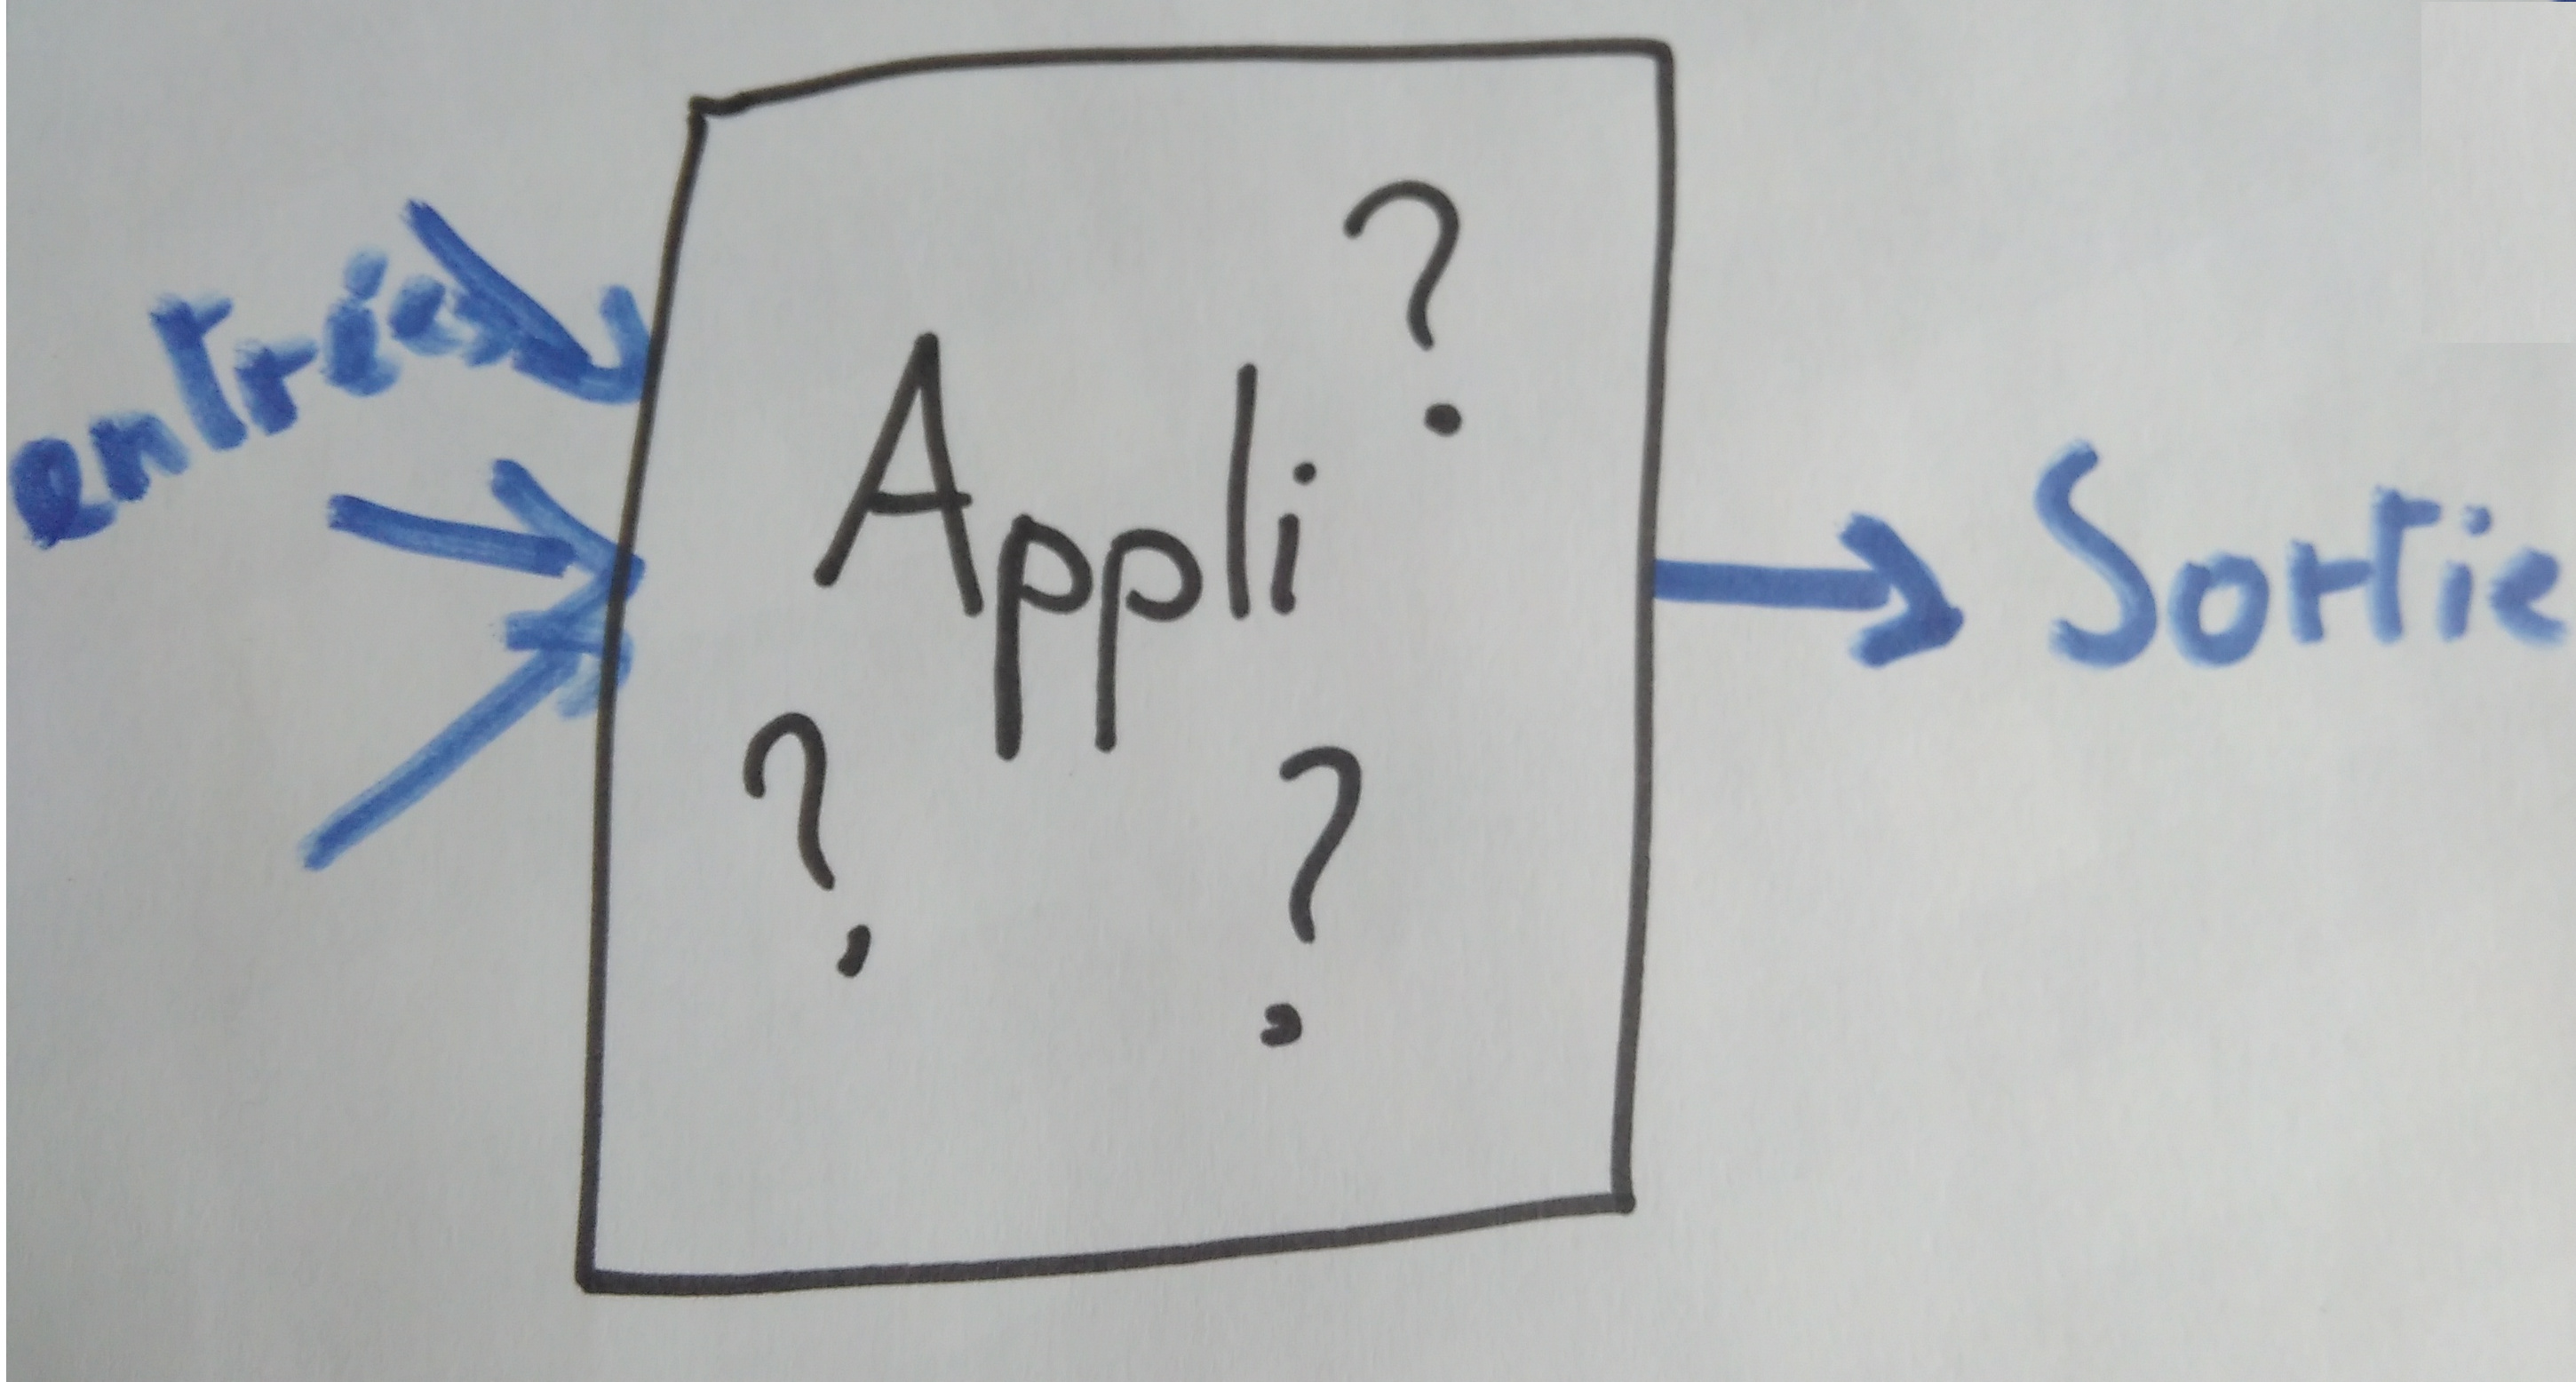 entrées
?
Appli
Sortie
?
?